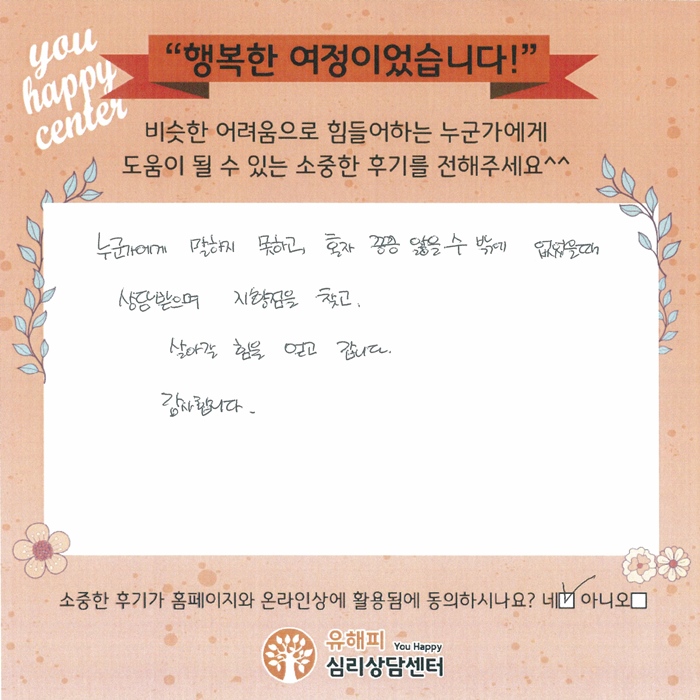 you
happy
center
“행복한 여정이었습니다!”
비슷한 어려움으로 힘들어하는 누군가에게
도움이 될 수 있는 소중한 후기를 전해주세요^^
누군가에게 말하지 못하고, 혼자 끙끙 앓을 수 밖에 없었을때
상담받으며 지향점을 찾고,
살아갈 힘을 얻고 갑니다.
감사합니다.
소중한 후기가 홈페이지와 온라인상에 활용됨에 동의하시나요? 네☑ 아니오☐
유해피 You Happy
심리상담센터